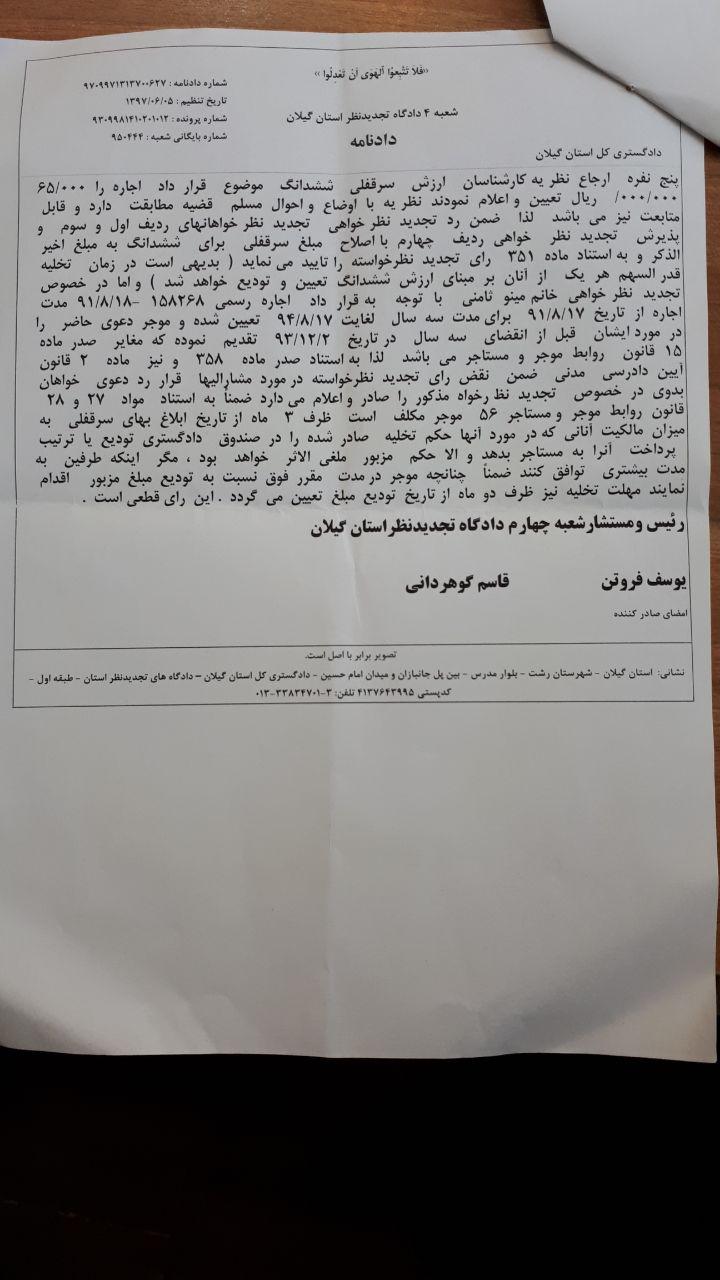 «فَلاَ تَتَّبِعوُا اَلهَوَی اَنْ تَعْدِلُوا »
شماره دادنامه : ۹۷۰۹۹۷۱۳۱۳۷۰۰۶۲۷
تاریخ تنظیم : ۱۳۹۷/۰۶/۰۵
شماره پرونده : ۹۳۰۹۹۸۱۴۱۰۲۰۱۰۱۲
شماره بایگانی شعبه : ۹۵۰۴۴۴
شعبه ۴ دادگاه تجدیدنظر استان گیلان
دادنامه
دادگستری کل استان گیلان
پنج نفره ارجاع نظر یه کارشناسان ارزش سرقفلی ششدانگ موضوع قرار داد اجاره را ۶۵/۰۰۰
/۰۰۰/۰۰۰ ریال تعیین و اعلام نمودند نظر یه با اوضاع و احوال مسلم قضیه مطابقت دارد و قابل
متابعت نیز می باشد لذا ضمن رد تجدید نظر خواهی تجدید نظر خواهانهای ردیف اول و سوم و
پذیرش تجدید نظر خواهی ردیف چهارم با اصلاح مبلغ سرقفلی برای ششدانگ به مبلغ اخیر
الذکر و به استناد ماده ۳۵۱ رای تجدید نظرخواسته را تایید می نماید ( بدیهی است در زمان تخلیه
قدر السهم هر یک از آنان بر مبنای ارزش ششدانگ تعیین و تودیع خواهد شد ) و اما در خصوص
تجدید نظر خواهی خانم مینو ثامنی با توجه به قرار داد اجاره رسمی ۱۵۸۲۶۸ -۹۱/۸/۱۸ مدت
اجاره از تاریخ ۹۱/۸/۱۷ برای مدت سه سال لغایت ۹۴/۸/۱۷ تعیین شده و موجر دعوی حاضر را
در مورد ایشان قبل از انقضای سه سال در تاریخ ۹۳/۱۲/۲ تقدیم نموده که مغایر صدر ماده
۱۵ قانون روابط موجر و مستاجر می باشد لذا به استناد صدر ماده ۳۵۸ و نیز ماده ۲ قانون
آیین دادرسی مدنی ضمن نقض رای تجدید نظرخواسته در مورد مشارالیها قرار رد دعوی خواهان
بدوی در خصوص تجدید نظ رخواه مذکور را صادر و اعلام می دارد ضمناً به استناد مواد ۲۷ و ۲۸
قانون روابط موجر و مستاجر ۵۶ موجر مکلف است ظرف ۳ ماه از تاریخ ابلاغ بهای سرقفلی به
میزان مالکیت آنانی که در مورد آنها حکم تخلیه صادر شده را در صندوق دادگستری تودیع یا ترتیب
پرداخت آنرا به مستاجر بدهد و الا حکم مزبور ملغی الاثر خواهد بود ، مگر اینکه طرفین به
مدت بیشتری توافق کنند ضمناً چنانچه موجر در مدت مقرر فوق نسبت به تودیع مبلغ مزبور اقدام
نمایند مهلت تخلیه نیز ظرف دو ماه از تاریخ تودیع مبلغ تعیین می گردد . این رای قطعی است .
رئیس ومستشارشعبه چهارم دادگاه تجدیدنظراستان گیلان
یوسف فروتن قاسم گوهردانی
امضای صادر کننده
تصویر برابر با اصل است.
نشانی: استان گیلان - شهرستان رشت - بلوار مدرس - بین پل جانبازان و میدان امام حسین - دادگستری کل استان گیلان – دادگاه های تجدیدنظر استان - طبقه اول -
کدپستی ۴۱۳۷۶۴۳۹۹۵ تلفن: ۳-۳۳۸۳۴۷۰۱-۰۱۳